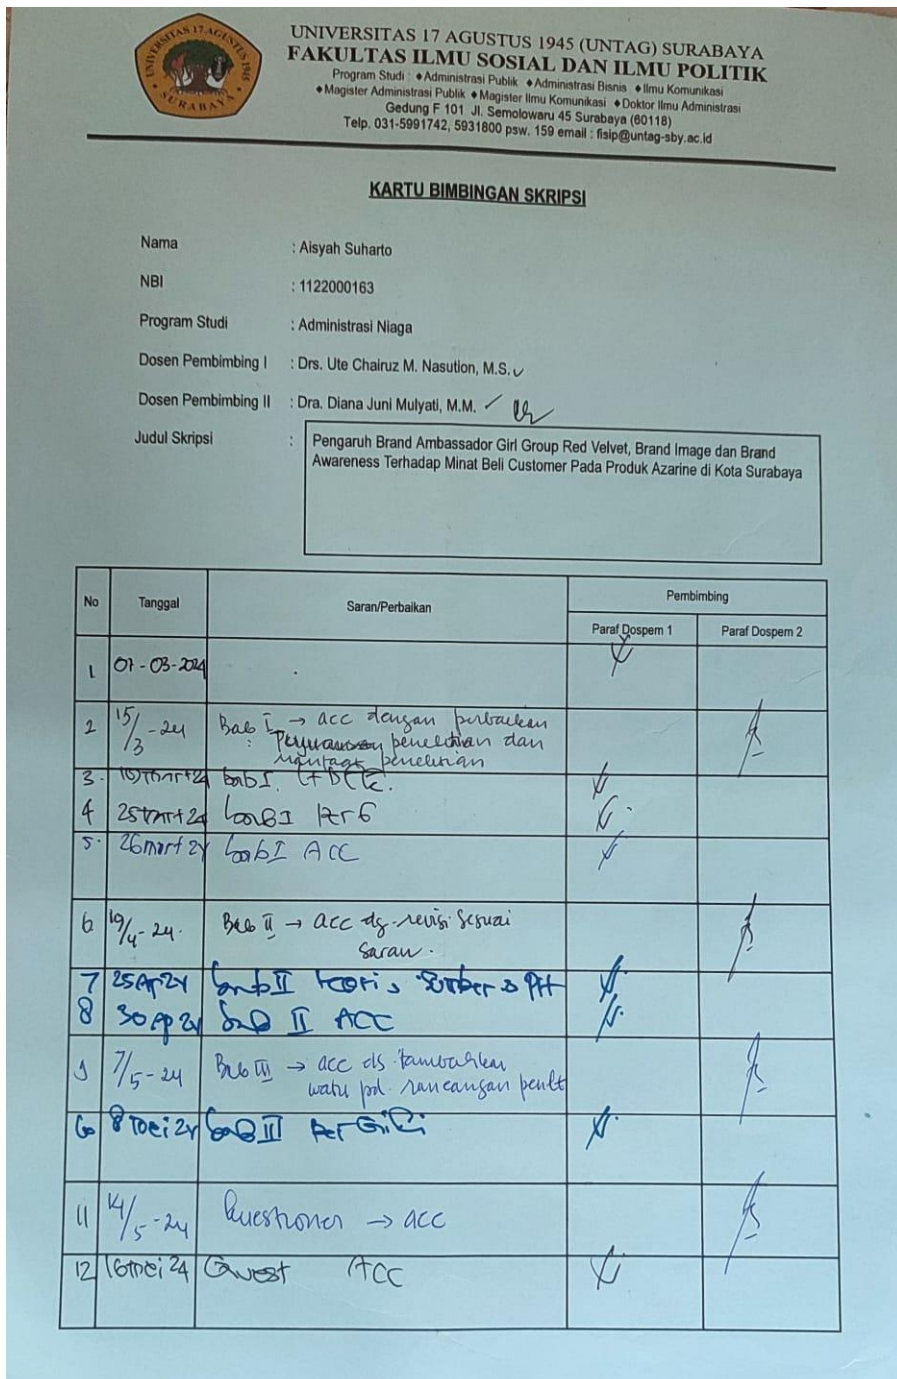 UNIVERSITAS 17 AGUSTUS 1945
SURABAYA
UNIVERSITAS 17 AGUSTUS 1945 (UNTAG) SURABAYA
FAKULTAS ILMU SOSIAL DAN ILMU POLITIK
Program Studi : ♦Administrasi Publik ♦Administrasi Bisnis ♦Ilmu Komunikasi
♦Magister Administrasi Publik ♦Magister Ilmu Komunikasi ♦Doktor Ilmu Administrasi
Gedung F 101 Jl. Semolowaru 45 Surabaya (60118)
Telp. 031-5991742, 5931800 psw. 159 email : fisip@untag-sby.ac.id
KARTU BIMBINGAN SKRIPSI
Nama : Aisyah Suharto
NBI : 1122000163
Program Studi : Administrasi Niaga
Dosen Pembimbing I : Drs. Ute Chairuz M. Nasution, M.S.
Dosen Pembimbing II : Dra. Diana Juni Mulyati, M.M.
Judul Skripsi : Pengaruh Brand Ambassador Girl Group Red Velvet, Brand Image dan Brand
Awareness Terhadap Minat Beli Customer Pada Produk Azarine di Kota Surabaya
No Tanggal Saran/Perbaikan Pembimbing
Paraf Dospem 1 Paraf Dospem 2
1 07-03-2024
2 15/3-24 Bab I → acc dengan perbaikan
penelitian dan
manfaat penelitian
3. bab I
4 25 mrt 24 bab I
5. 26 mrt 24 bab I ACC
6 19/4-24. Bab II → acc dg revisi sesuai
saran.
7 25 Ap 24 bab II teori,
8 30 Ap 24 bab II ACC
9 7/5-24 Bab III → acc dg tambahkan
pd. rancangan penelt
10 8 mei 24 bab III
11 14/5-24 Questioner → acc
12 16 mei 24 Quest ACC